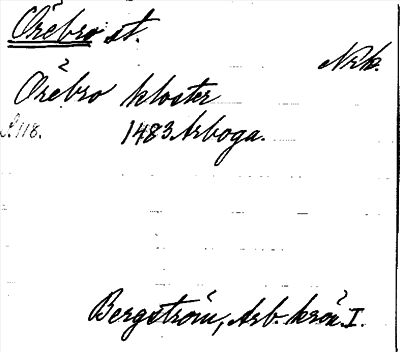 Örebro st.
Nrk.
Örebro kloster
S. 118. 1483 Arboga.
Bergström, Arb. krön. I.